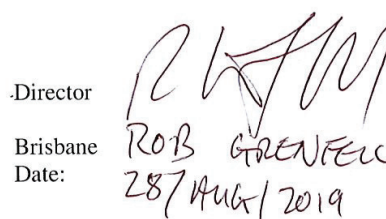 Director
Brisbane ROB GRENFELL
Date: 287 AUG / 2019